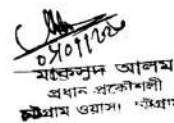 মাকসুদ আলম
প্রধান প্রকৌশলী
চট্টগ্রাম ওয়াসা। চট্টগ্রাম